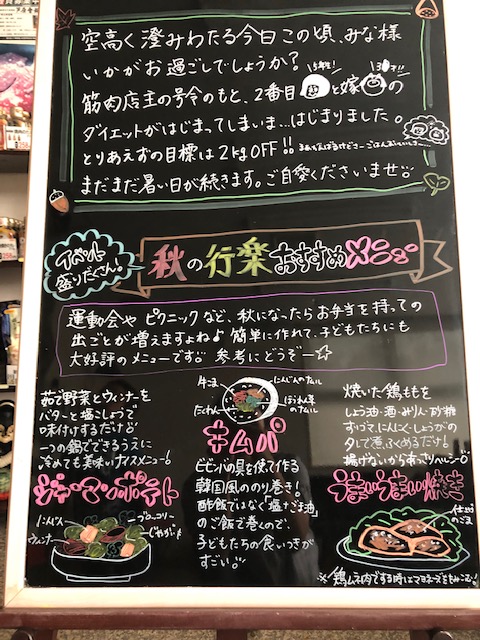 空高く澄みわたる今日この頃、みな様
いかがお過ごしでしょうか?
筋肉店主の号令のもと、2番目 と嫁 の
ダイエットがはじまってしまいま…はじまりました。
とりあえずの目標は2kgOFF!!
まだまだ暑い日が続きます。ご自愛くださいませ
イベント
盛りだくさん!
秋の行楽おすすめメニュー
運動会や ピクニックなど、秋になったらお弁当を持っての
出ごとが増えますよね♪ 簡単に作れて、子どもたちにも
大好評のメニューです 参考にどうぞー☆
茹で野菜とウィンナーを
バターと塩こしょうで
味付けするだけ
一つの鍋でできるうえに
冷めても美味いナイスメニュー!
ジャーマンポテト
にんじん
ウィンナー
ブロッコリー
じゃがいも
牛こま
にんじんのナムル
たくわん
ほうれん草
のナムル
キムパ
ビビンバの具を使って作る
韓国風ののり巻き!
酢飯ではなく「塩ごま油」
のご飯で巻くので、
子どもたちの食いつきが
すごい
焼いた鶏ももを
しょう油・酒・みりん・砂糖
すりごま・にんにく・しょうがの
タレで煮ふくめるだけ!
揚げないからあっさりヘルシー
うまいうまい焼き
仕上げ
のごま
※鶏ムネ肉でする時はマヨネーズをもみこむ!